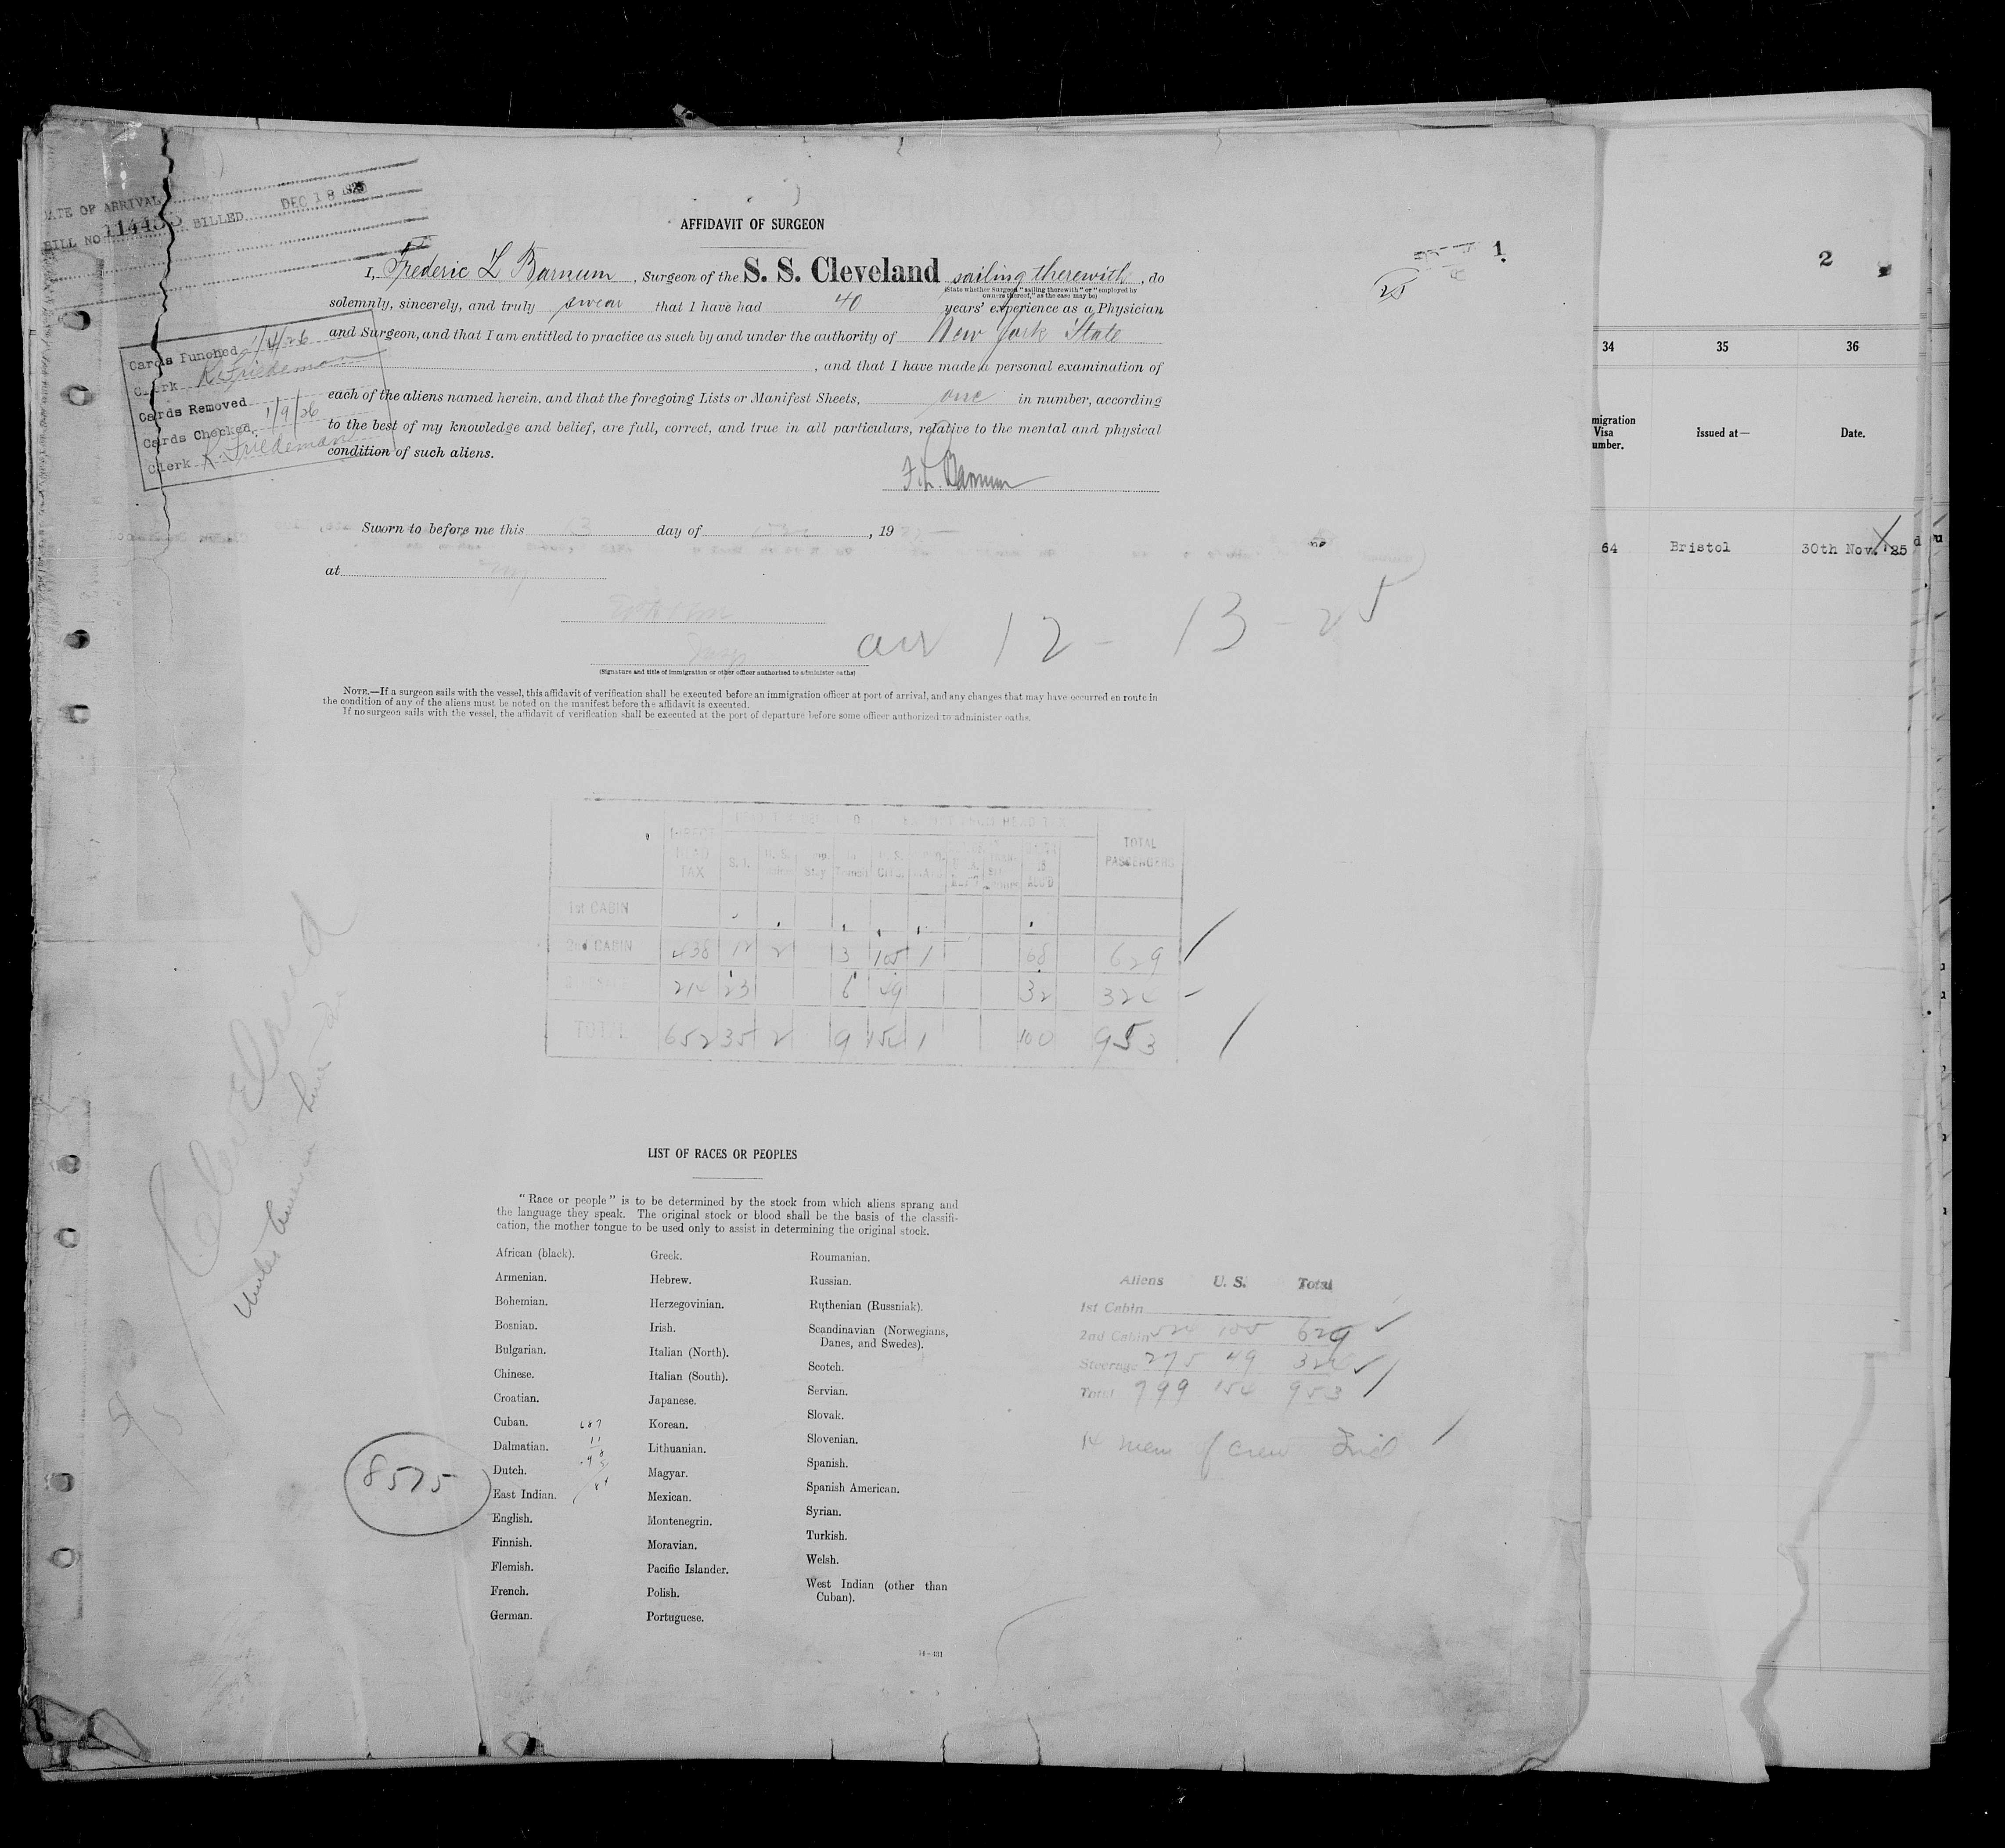 DATE OF ARRIVAL
BILL NO. BILLED DEC 18 1925
AFFIDAVIT OF SURGEON
1
I, Frederic L Barnum, Surgeon of the S. S. Cleveland sailing therewith, do
(State whether Surgeon "sailing therewith" or "employed by
owners thereof," as the case may be)
solemnly, sincerely, and truly swear that I have had 40 years' experience as a Physician
and Surgeon, and that I am entitled to practice as such by and under the authority of New York State
, and that I have made a personal examination of
each of the aliens named herein, and that the foregoing Lists or Manifest Sheets, one in number, according
to the best of my knowledge and belief, are full, correct, and true in all particulars, relative to the mental and physical
condition of such aliens.
F. L. Barnum
Cards Punched 1/4/26
Clerk K. Friedeman
Cards Removed
Cards Checked 1/9/26
Clerk K. Friedeman
Sworn to before me this 13 day of , 19
at
arr 12 - 13 - 25
(Signature and title of immigration or other officer authorized to administer oaths)
NOTE.—If a surgeon sails with the vessel, this affidavit of verification shall be executed before an immigration officer at port of arrival, and any changes that may have occurred en route in
the condition of any of the aliens must be noted on the manifest before the affidavit is executed.
If no surgeon sails with the vessel, the affidavit of verification shall be executed at the port of departure before some officer authorized to administer oaths.
HEAD TAX S. I. U. S. Stay CITS. TOTAL PASSENGERS
1st CABIN
2nd CABIN 438 12 2 3 105 1 68 629
214 23 6 49 32 324
TOTAL 652 35 2 9 154 1 100 953
Cleveland
United American Line
LIST OF RACES OR PEOPLES
"Race or people" is to be determined by the stock from which aliens sprang and
the language they speak. The original stock or blood shall be the basis of the classifi-
cation, the mother tongue to be used only to assist in determining the original stock.
African (black).
Armenian.
Bohemian.
Bosnian.
Bulgarian.
Chinese.
Croatian.
Cuban.
Dalmatian.
Dutch.
East Indian.
English.
Finnish.
Flemish.
French.
German.
Greek.
Hebrew.
Herzegovinian.
Irish.
Italian (North).
Italian (South).
Japanese.
Korean.
Lithuanian.
Magyar.
Mexican.
Montenegrin.
Moravian.
Pacific Islander.
Polish.
Portuguese.
Roumanian.
Russian.
Ruthenian (Russniak).
Scandinavian (Norwegians,
Danes, and Swedes).
Scotch.
Servian.
Slovak.
Slovenian.
Spanish.
Spanish American.
Syrian.
Turkish.
Welsh.
West Indian (other than
Cuban).
8575
Aliens U. S. Total
1st Cabin
2nd Cabin 524 105 629
Steerage 275 49 324
Total 799 154 953
14 mem of crew
2
34 35 36
migration
Visa
umber.
Issued at—
Date.
64 Bristol 30th Nov. '25